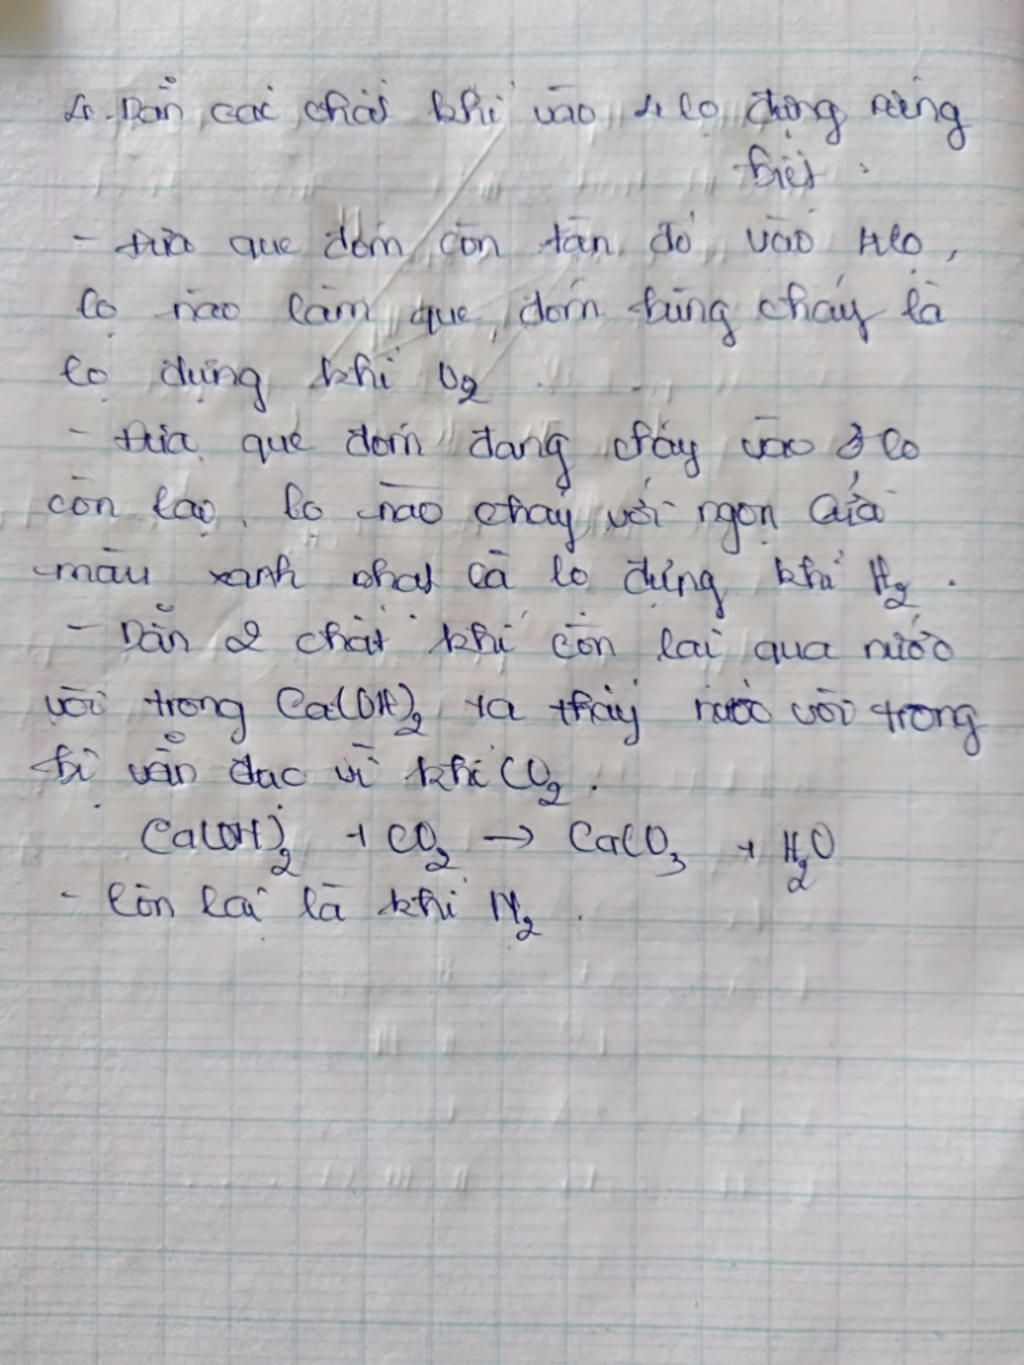 4. Dẫn các chất khí vào 4 lọ đựng riêng
biệt.
- Đưa que đóm còn tàn đỏ vào 4 lọ,
lọ nào làm que đóm bùng cháy là
lọ đựng khí O2
- Đưa que đóm đang cháy vào 3 lọ
còn lại, lọ nào cháy với ngọn lửa
màu xanh nhạt là lọ đựng khí H2.
- Dẫn 2 chất khí còn lại qua nước
vôi trong Ca(OH)2 ta thấy nước vôi trong
bị vẩn đục vì khí CO2.
Ca(OH)2 + CO2 → CaCO3 + H2O
- Còn lại là khí N2.